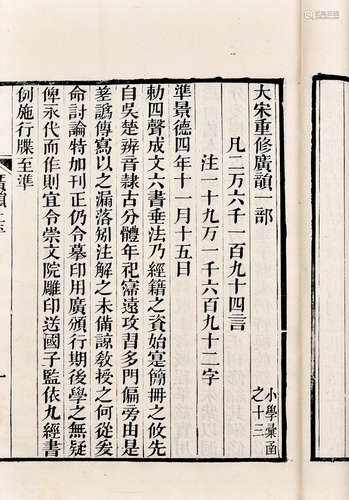 大宋重修廣韻一部
凡二万六千一百九十四言
注一十九万一千六百九十二字
準景德四年十一月十五日
勅四聲成文六書垂法乃經籍之資始寔簡冊之攸先
自吳楚辨音隸古分體年祀寖遠攻習多門偏旁由是
差譌傳寫以之漏落矧注解之未備諒敎授之何從爰
命討論特加刊正仍令摹印用廣頒行期後學之無疑
俾永代而作則宜令崇文院雕印送國子監依九經書
例施行牒至準
小學彙函
之十三